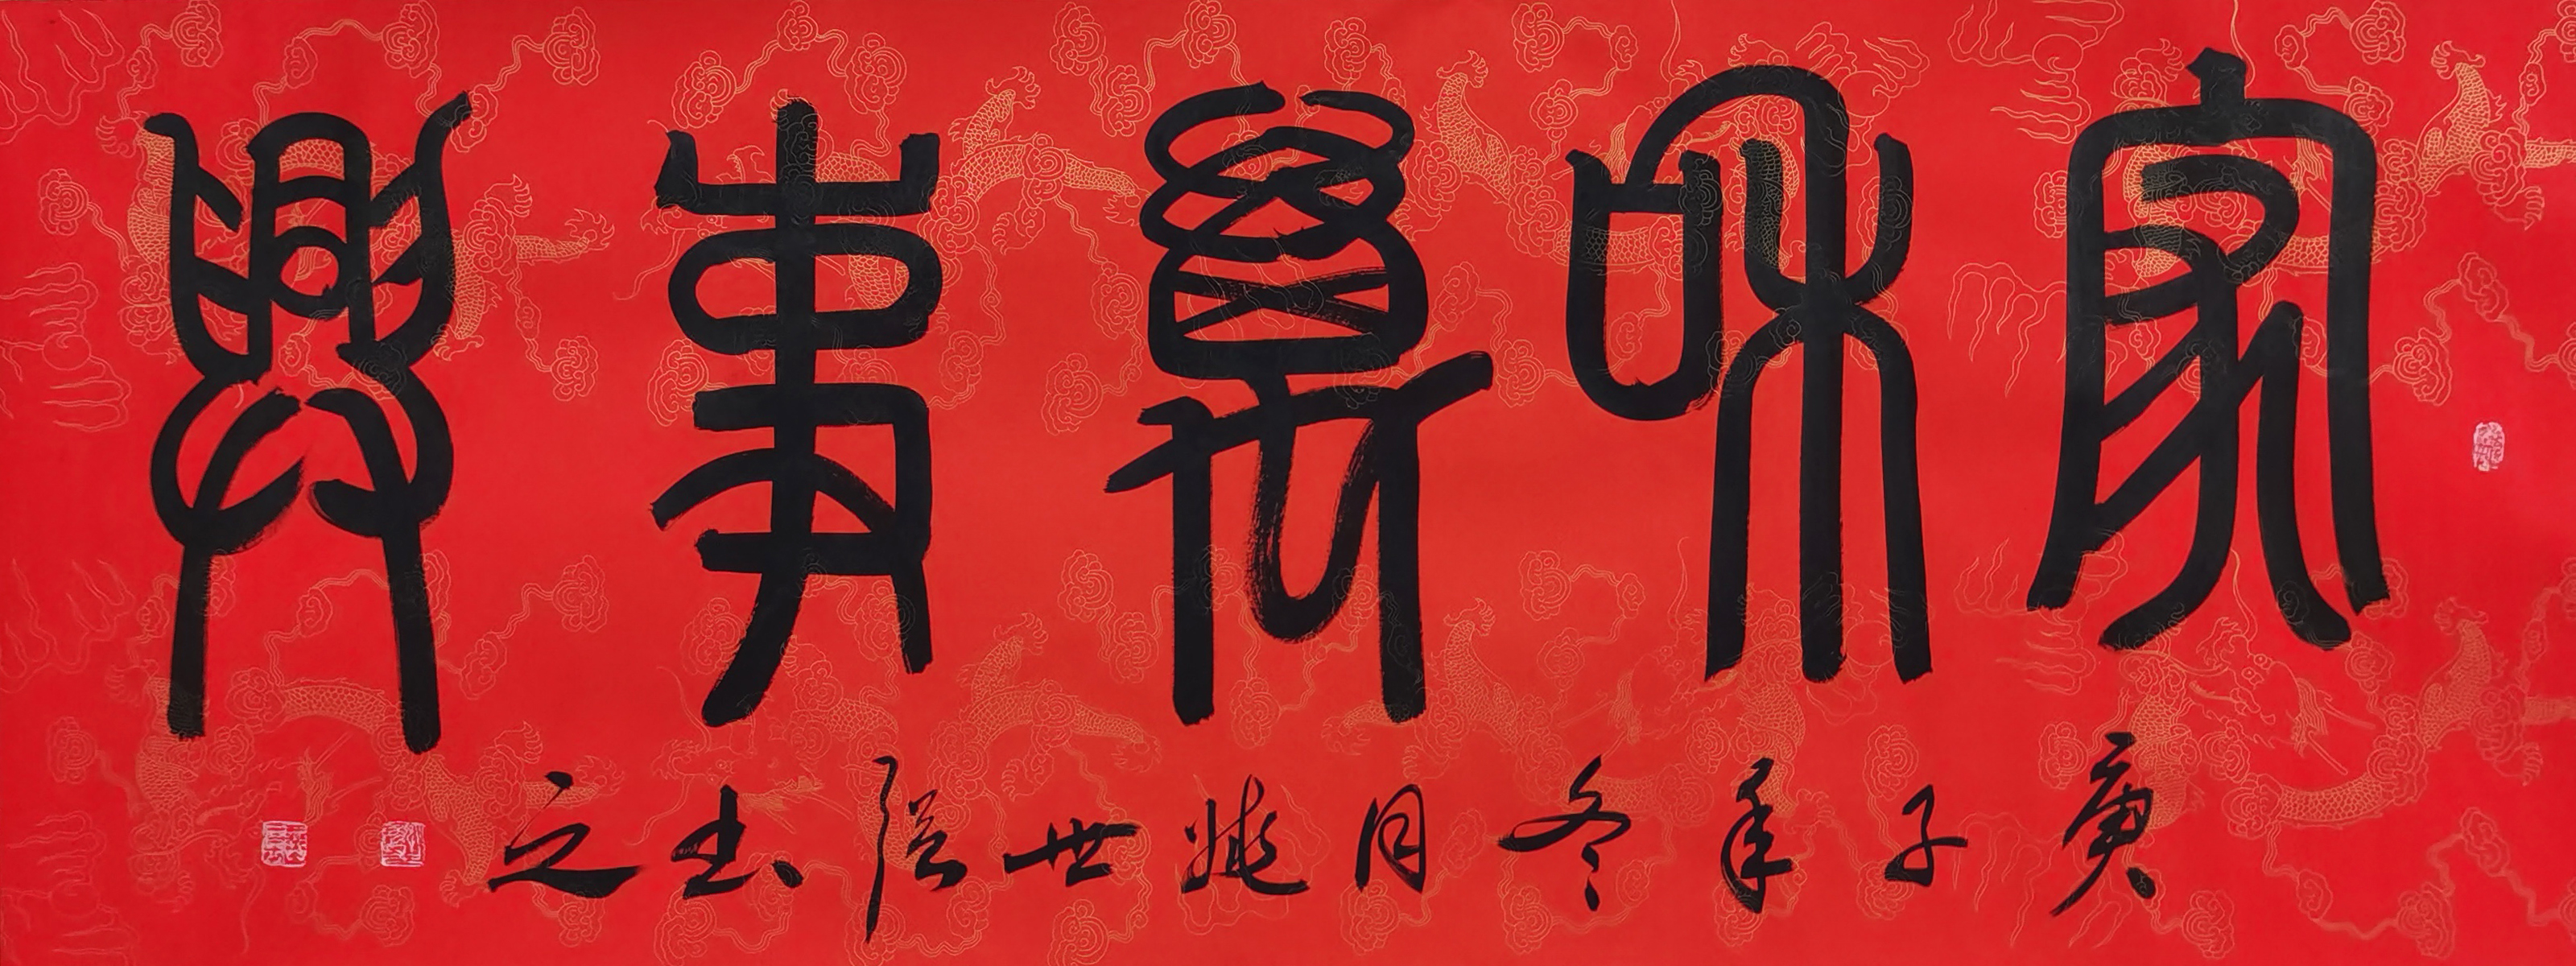 家和萬事興
庚子年冬月姚世強书之